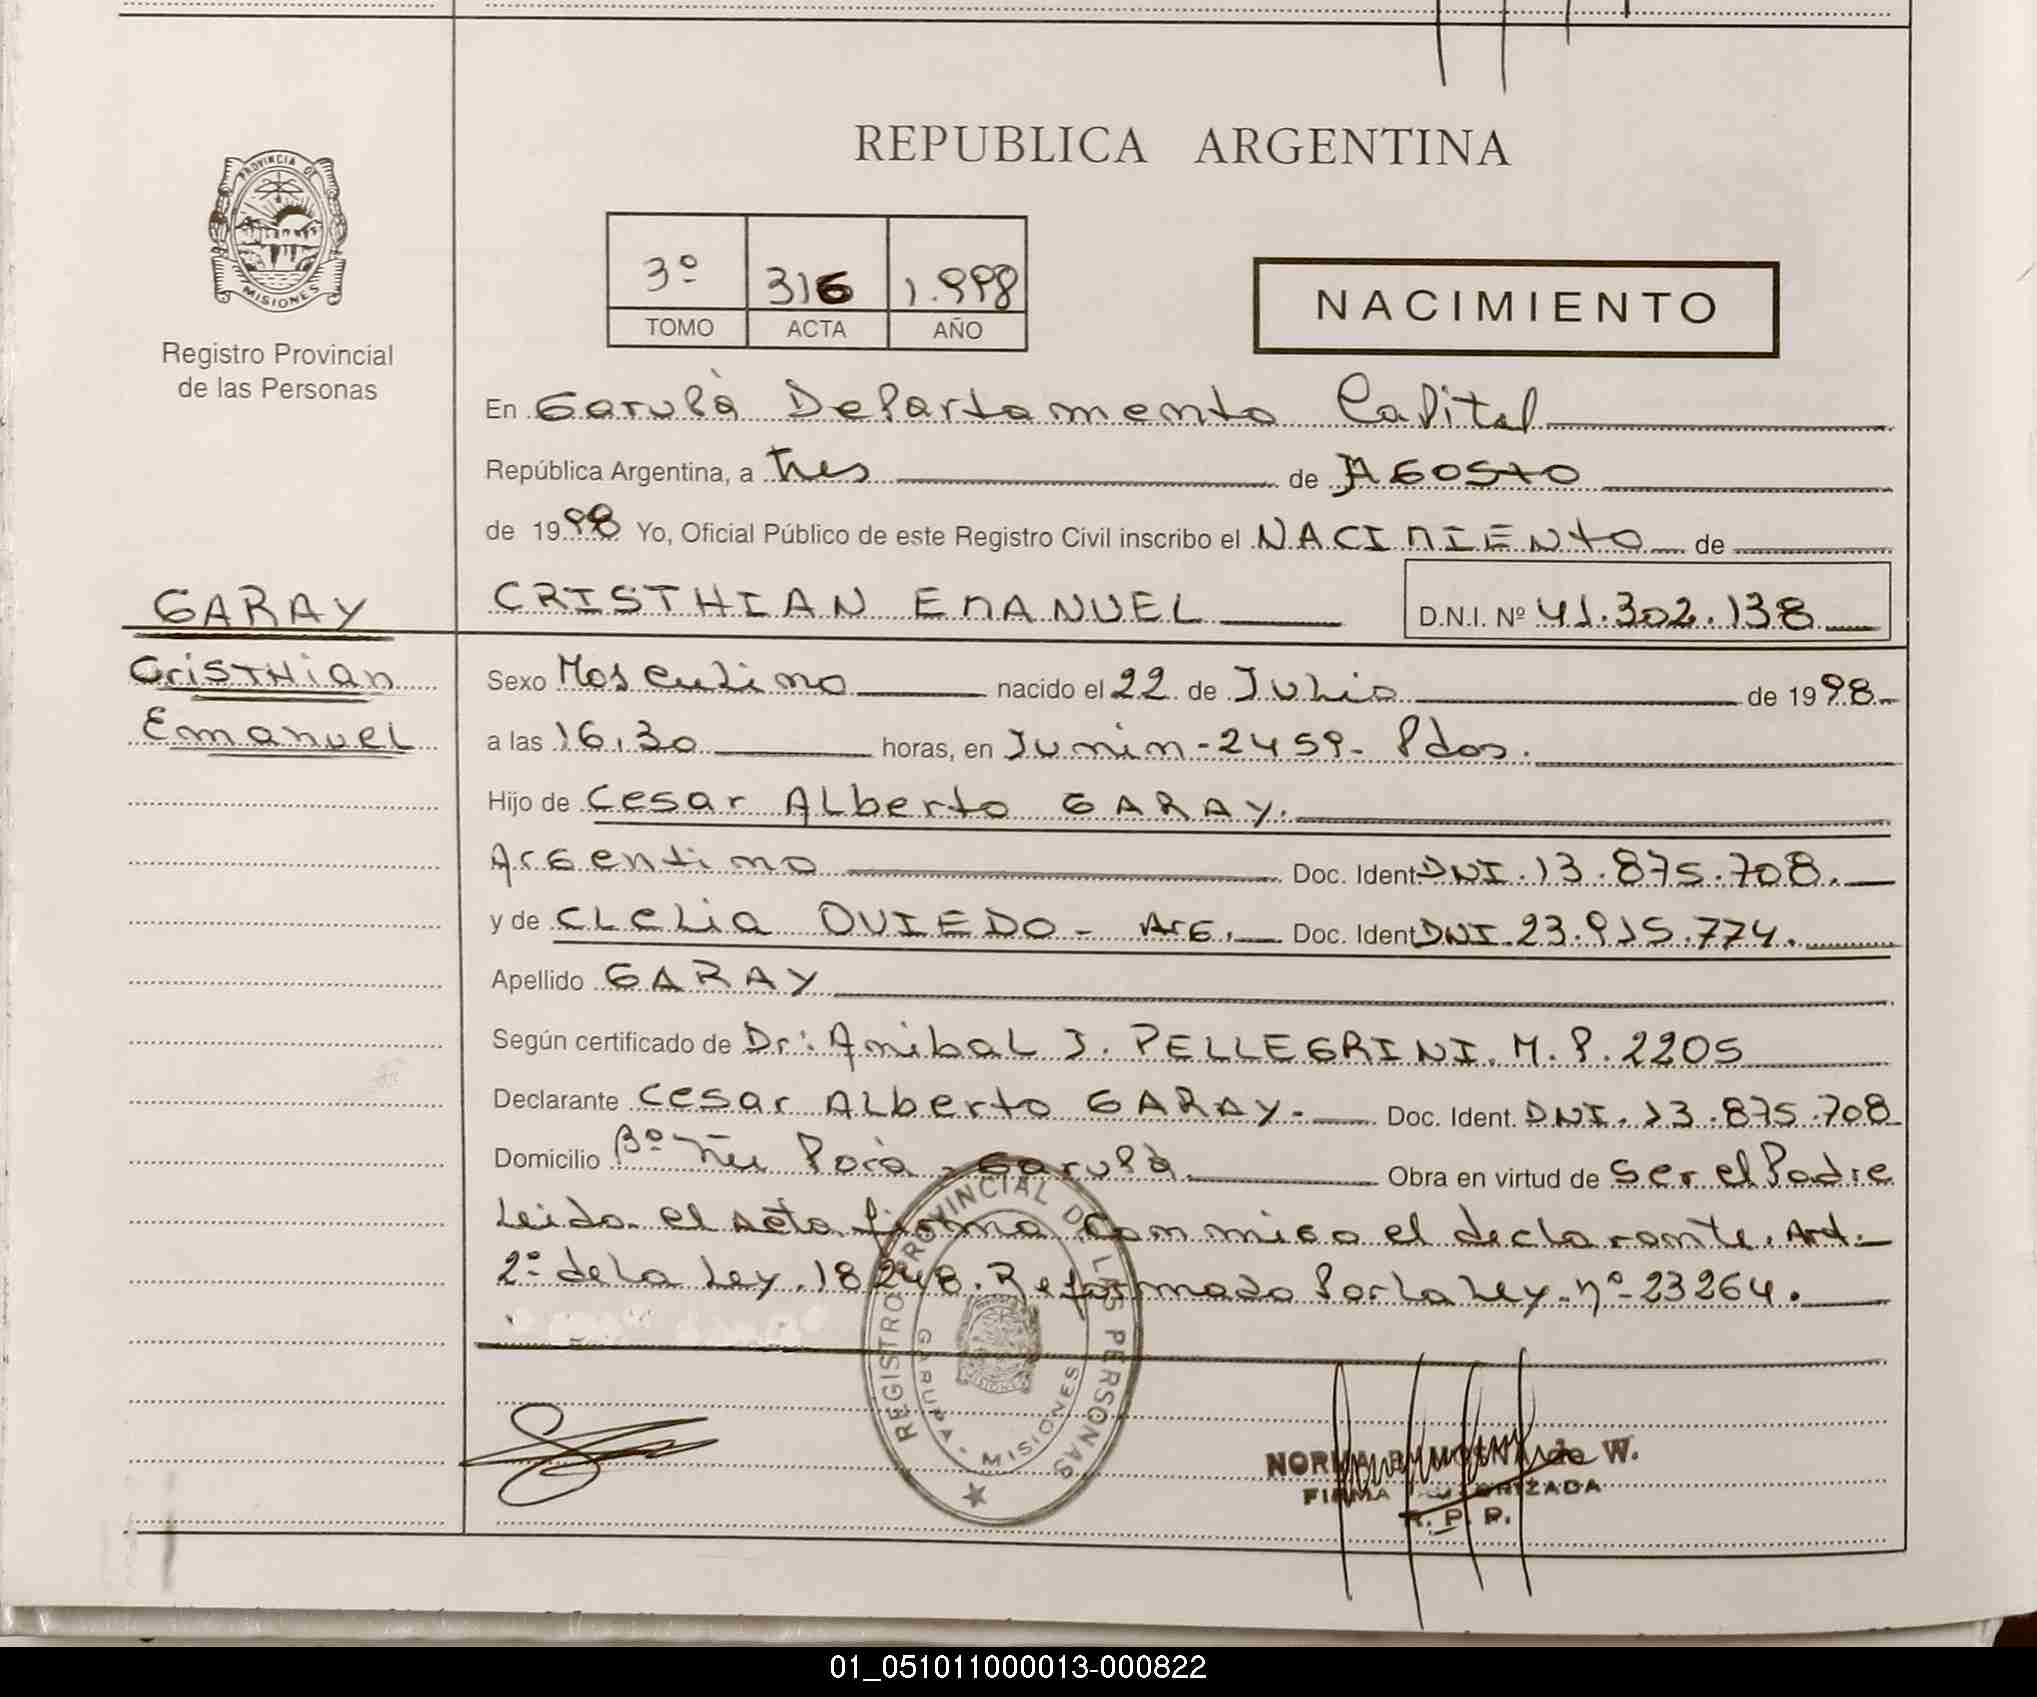 REPUBLICA ARGENTINA
PROVINCIA DE
MISIONES
Registro Provincial
de las Personas
3º 316 1.998
TOMO ACTA AÑO
NACIMIENTO
En Garupà Departamento Capital
República Argentina, a tres de AGOSTO
de 1998 Yo, Oficial Público de este Registro Civil inscribo el NACIMIENTO de
GARAY
CRISTHIAN EMANUEL D.N.I. Nº 41.302.138
CrisTHian
Emanuel
Sexo Masculino nacido el 22 de Julio de 1998.
a las 16.30 horas, en Junin-2459- Pdas.
Hijo de Cesar ALberto GARAY.
Argentino Doc. Ident DNI.13.875.708.
y de CLeLia OVIEDO - Arg. Doc. Ident DNI.23.915.774.
Apellido GARAY
Según certificado de Dr: Anibal J. PELLEGRINI. M.P. 2205
Declarante Cesar ALberto GARAY. Doc. Ident. DNI.13.875.708
Domicilio Bº Ñu Porà - Garupà. Obra en virtud de Ser el Padre
Leida el acta firma conmigo el declarante. Art.
2º de La Ley.18248. Reformado Por La Ley nº 23264.
REGISTRO PROVINCIAL DE LAS PERSONAS
GARUPA - MISIONES
MISIONES
NORMA de W.
FIRMA AUTORIZADA
R. P. P.
01_051011000013-000822